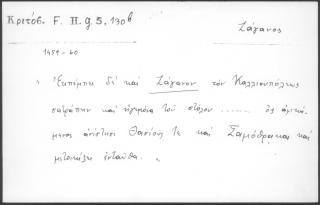 Κριτόβ. F. H. g 5, 130b
Ζάγανος
1459-60
"Ἐκπέμπει δὲ καὶ Ζάγανον τὸν Καλλιουπόλεως
σατράπην καὶ ἡγεμόνα τοῦ στόλου ....... ὃς ἀφικό-
μενος ἀνίστησι Θασίους τε καὶ Σαμόθρᾳκας καὶ
μετοικίζει ἐνταῦθα. „